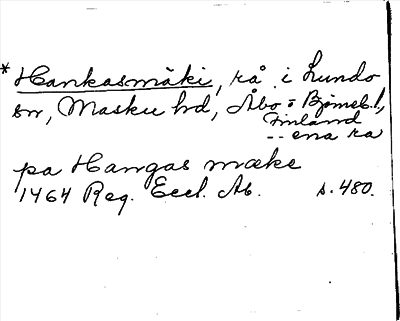 * Hankasmäki, rå i Lundo
sn, Masku hd, Åbo o Björneb. l,
Finland
-- ena ra
pa Hangas mæke
1464 Reg. Eccl. Ab. s. 480.